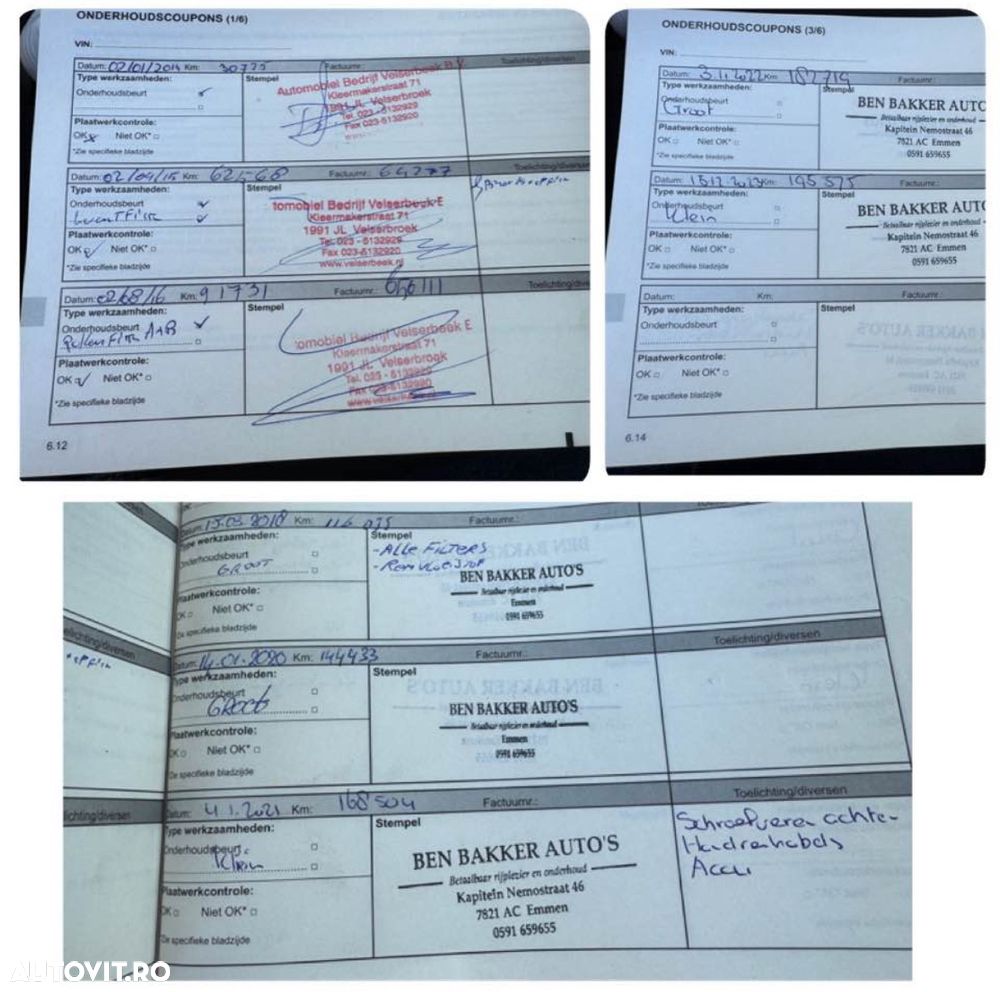 ONDERHOUDSCOUPONS (1/6)
VIN:
Datum: 02/01/2014 Km: 30775 Factuurnr.: Toelichting/diversen
Type werkzaamheden: Stempel
Onderhoudsbeurt
Automobiel Bedrijf Velserbeek B.V.
Kleermakerstraat 71
1991 JL Velserbroek
Tel. 023-5132929
Fax 023-5132920
Plaatwerkcontrole:
OK Niet OK*
*Zie specifieke bladzijde
Datum: 02/04/15 Km: 62568 Factuurnr.: 64277 Toelichting/diversen
Type werkzaamheden: Stempel
Onderhoudsbeurt
tomobiel Bedrijf Velserbeek E
Kleermakerstraat 71
1991 JL Velserbroek
Tel. 023-5132929
Fax 023-5132920
www.velserbeek.nl
Plaatwerkcontrole:
OK Niet OK*
*Zie specifieke bladzijde
Datum: 02/08/16 Km: 91731 Factuurnr.: 656111 Toelichting/diversen
Type werkzaamheden: Stempel
Onderhoudsbeurt
Pollen Filter A+B
tomobiel Bedrijf Velserbeek E
Kleermakerstraat 71
1991 JL Velserbroek
Tel. 023-5132929
Fax 023-5132920
www.velserbeek.nl
Plaatwerkcontrole:
OK Niet OK*
*Zie specifieke bladzijde
6.12
ONDERHOUDSCOUPONS (3/6)
VIN:
Datum: 3.11.2022 Km: 182719 Factuurnr.:
Type werkzaamheden: Stempel
Onderhoudsbeurt
Groot
BEN BAKKER AUTO
Betaalbaar rijplezier en onderhoud
Kapitein Nemostraat 46
7821 AC Emmen
0591 659655
Plaatwerkcontrole:
OK Niet OK*
*Zie specifieke bladzijde
Datum: 15.12.2023 Km: 195575 Factuurnr.:
Type werkzaamheden: Stempel
Onderhoudsbeurt
Klein
BEN BAKKER AUT
Betaalbaar rijplezier en onderhoud
Kapitein Nemostraat 46
7821 AC Emmen
0591 659655
Plaatwerkcontrole:
OK Niet OK*
*Zie specifieke bladzijde
Datum: Km: Factuurnr.:
Type werkzaamheden: Stempel
Onderhoudsbeurt
Plaatwerkcontrole:
OK Niet OK*
*Zie specifieke bladzijde
6.14
Datum: 15.03.2018 Km: 116 075 Factuurnr.:
Type werkzaamheden: Stempel
Onderhoudsbeurt
GROOT
- ALLE FILTERS
- Remvloeistof
BEN BAKKER AUTO'S
Betaalbaar rijplezier en onderhoud
Emmen
0591 659655
Plaatwerkcontrole:
OK Niet OK*
Zie specifieke bladzijde
Datum: 14.01.2020 Km: 144433 Factuurnr.: Toelichting/diversen
Type werkzaamheden: Stempel
Onderhoudsbeurt
GROOt
BEN BAKKER AUTO'S
Betaalbaar rijplezier en onderhoud
Emmen
0591 659655
Plaatwerkcontrole:
OK Niet OK*
Zie specifieke bladzijde
Datum: 4.1.2021 Km: 168504 Factuurnr.: Toelichting/diversen
Type werkzaamheden: Stempel
Onderhoudsbeurt
Klein
BEN BAKKER AUTO'S
Betaalbaar rijplezier en onderhoud
Kapitein Nemostraat 46
7821 AC Emmen
0591 659655
Schroefveren achter
Handremkabels
Accu
Plaatwerkcontrole:
OK Niet OK*
Zie specifieke bladzijde
AUTOVIT.RO